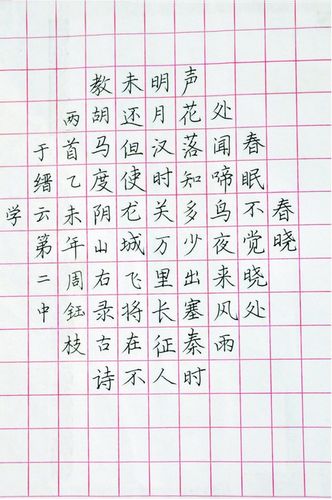 春晓
春眠不觉晓处
处闻啼鸟夜来风雨
声花落知多少出塞秦时
明月汉时关万里长征人
未还但使龙城飞将在不
教胡马度阴山右录古诗
两首乙未年周钰枝
于缙云第二中
学